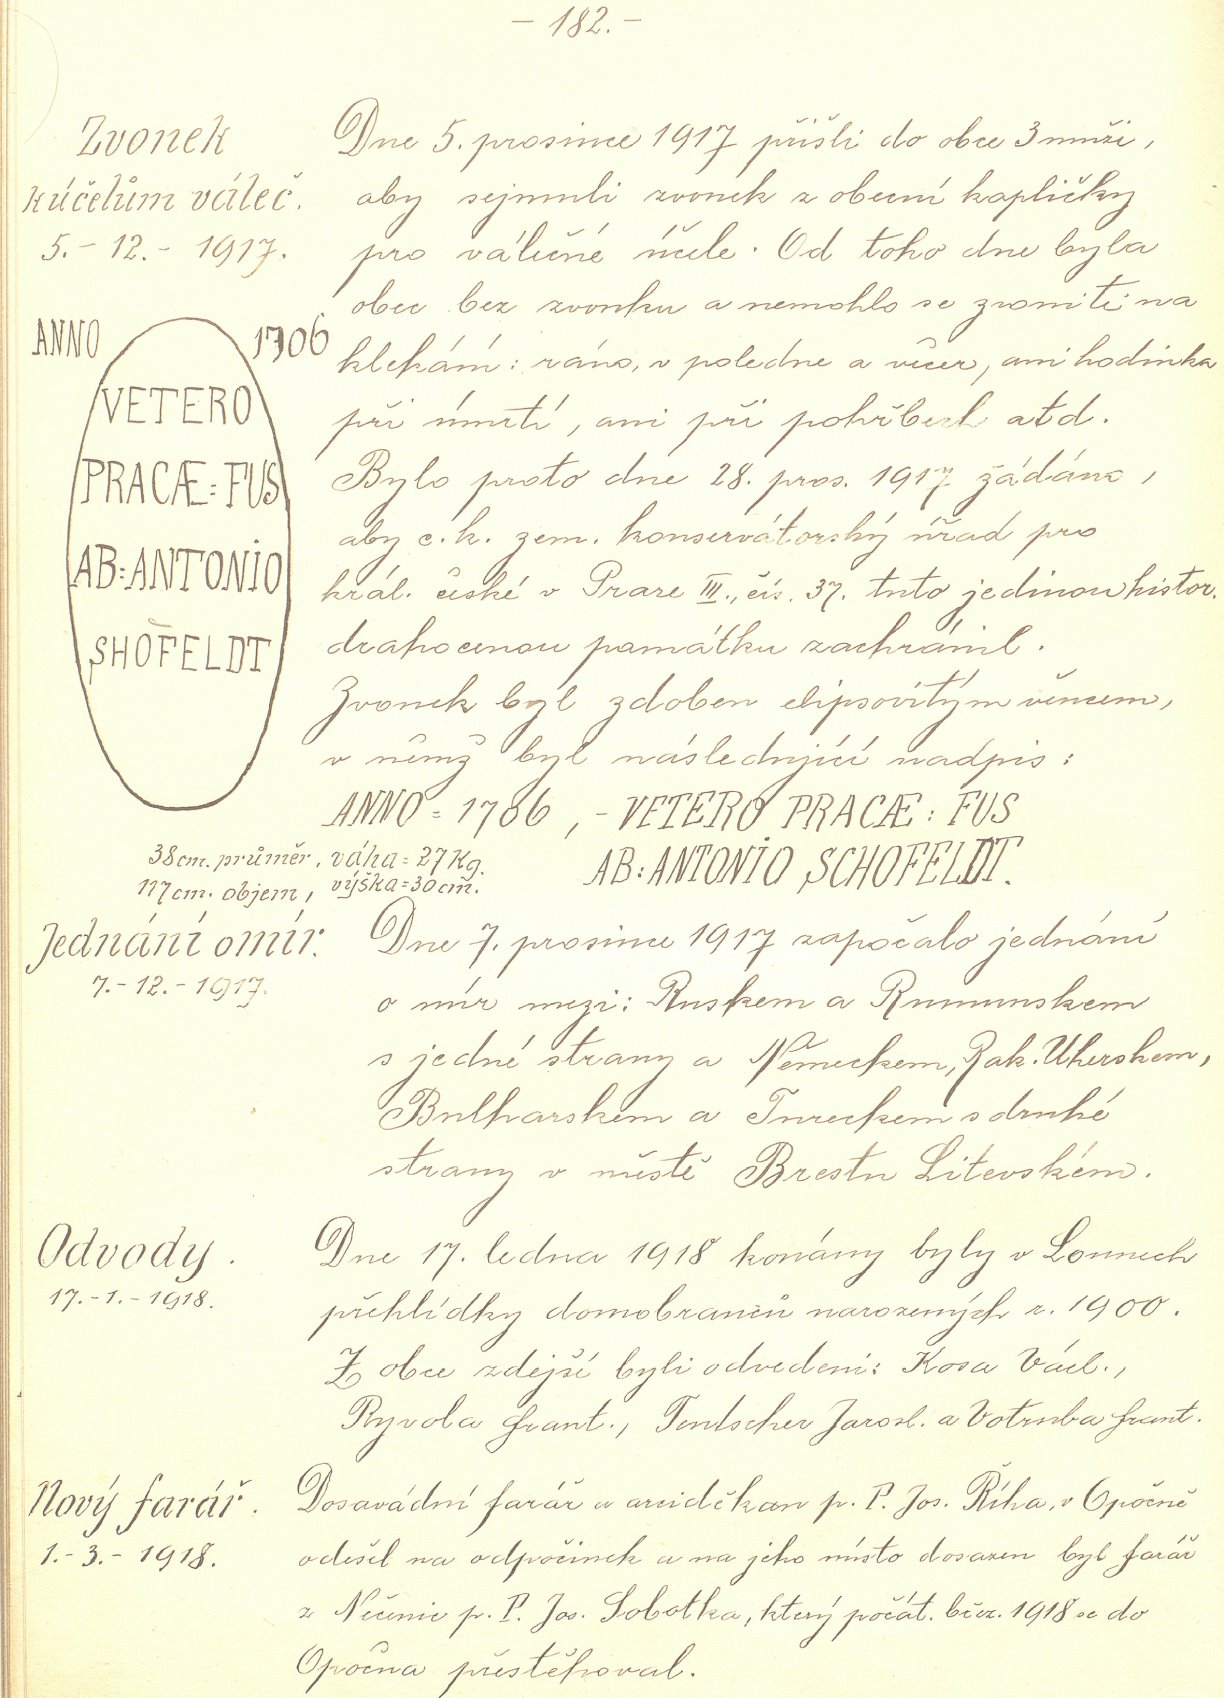 – 182. –
Zvonek
k účelům váleč.
5. – 12. – 1917.
Dne 5. prosince 1917 přišli do obce 3 muži,
aby sejmuli zvonek z obecní kapličky
pro válečné účele. Od toho dne byla
obec bez zvonku a nemohlo se zvoniti na
klekání: ráno, v poledne a večer, ani hodinka
při úmrtí, ani při pohřbech atd.
Bylo proto dne 28. pros. 1917 žádáno,
aby c. k. zem. konservátorský úřad pro
král. české v Praze III., čís. 37. tuto jedinou histor.
drahocenou památku zachránil.
Zvonek byl zdoben elipsovitým věncem,
v němž byl následující nadpis:
ANNO = 1706, – VETERO PRACÆ: FUS
AB: ANTONIO SCHOFELDT.
ANNO 1706
VETERO
PRACÆ: FUS
AB: ANTONIO
SHOFELDT
38 cm. průměr, váha = 27 Kg.
117 cm. objem, výška = 30 cm.
Jednání o mír.
7. – 12. – 1917.
Dne 7. prosince 1917 započalo jednání
o mír mezi: Ruskem a Rumunskem
s jedné strany a Německem, Rak. Uherskem,
Bulharskem a Tureckem s druhé
strany v městě Brestu Litevském.
Odvody.
17. – 1. – 1918.
Dne 17. ledna 1918 konány byly v Lounech
přehlídky domobranců narozených r. 1900.
Z obce zdejší byli odvedeni: Kosa Václ.,
Ryvola Frant., Tentscher Jarosl. a Votruba Frant.
Nový farář.
1. – 3. – 1918.
Dosavádní farář a arciděkan p. P. Jos. Říha, v Opočně
odešel na odpočinek a na jeho místo dosazen byl farář
z Nečenic p. P. Jos. Sobotka, který počát. břez. 1918 se do
Opočna přestěhoval.